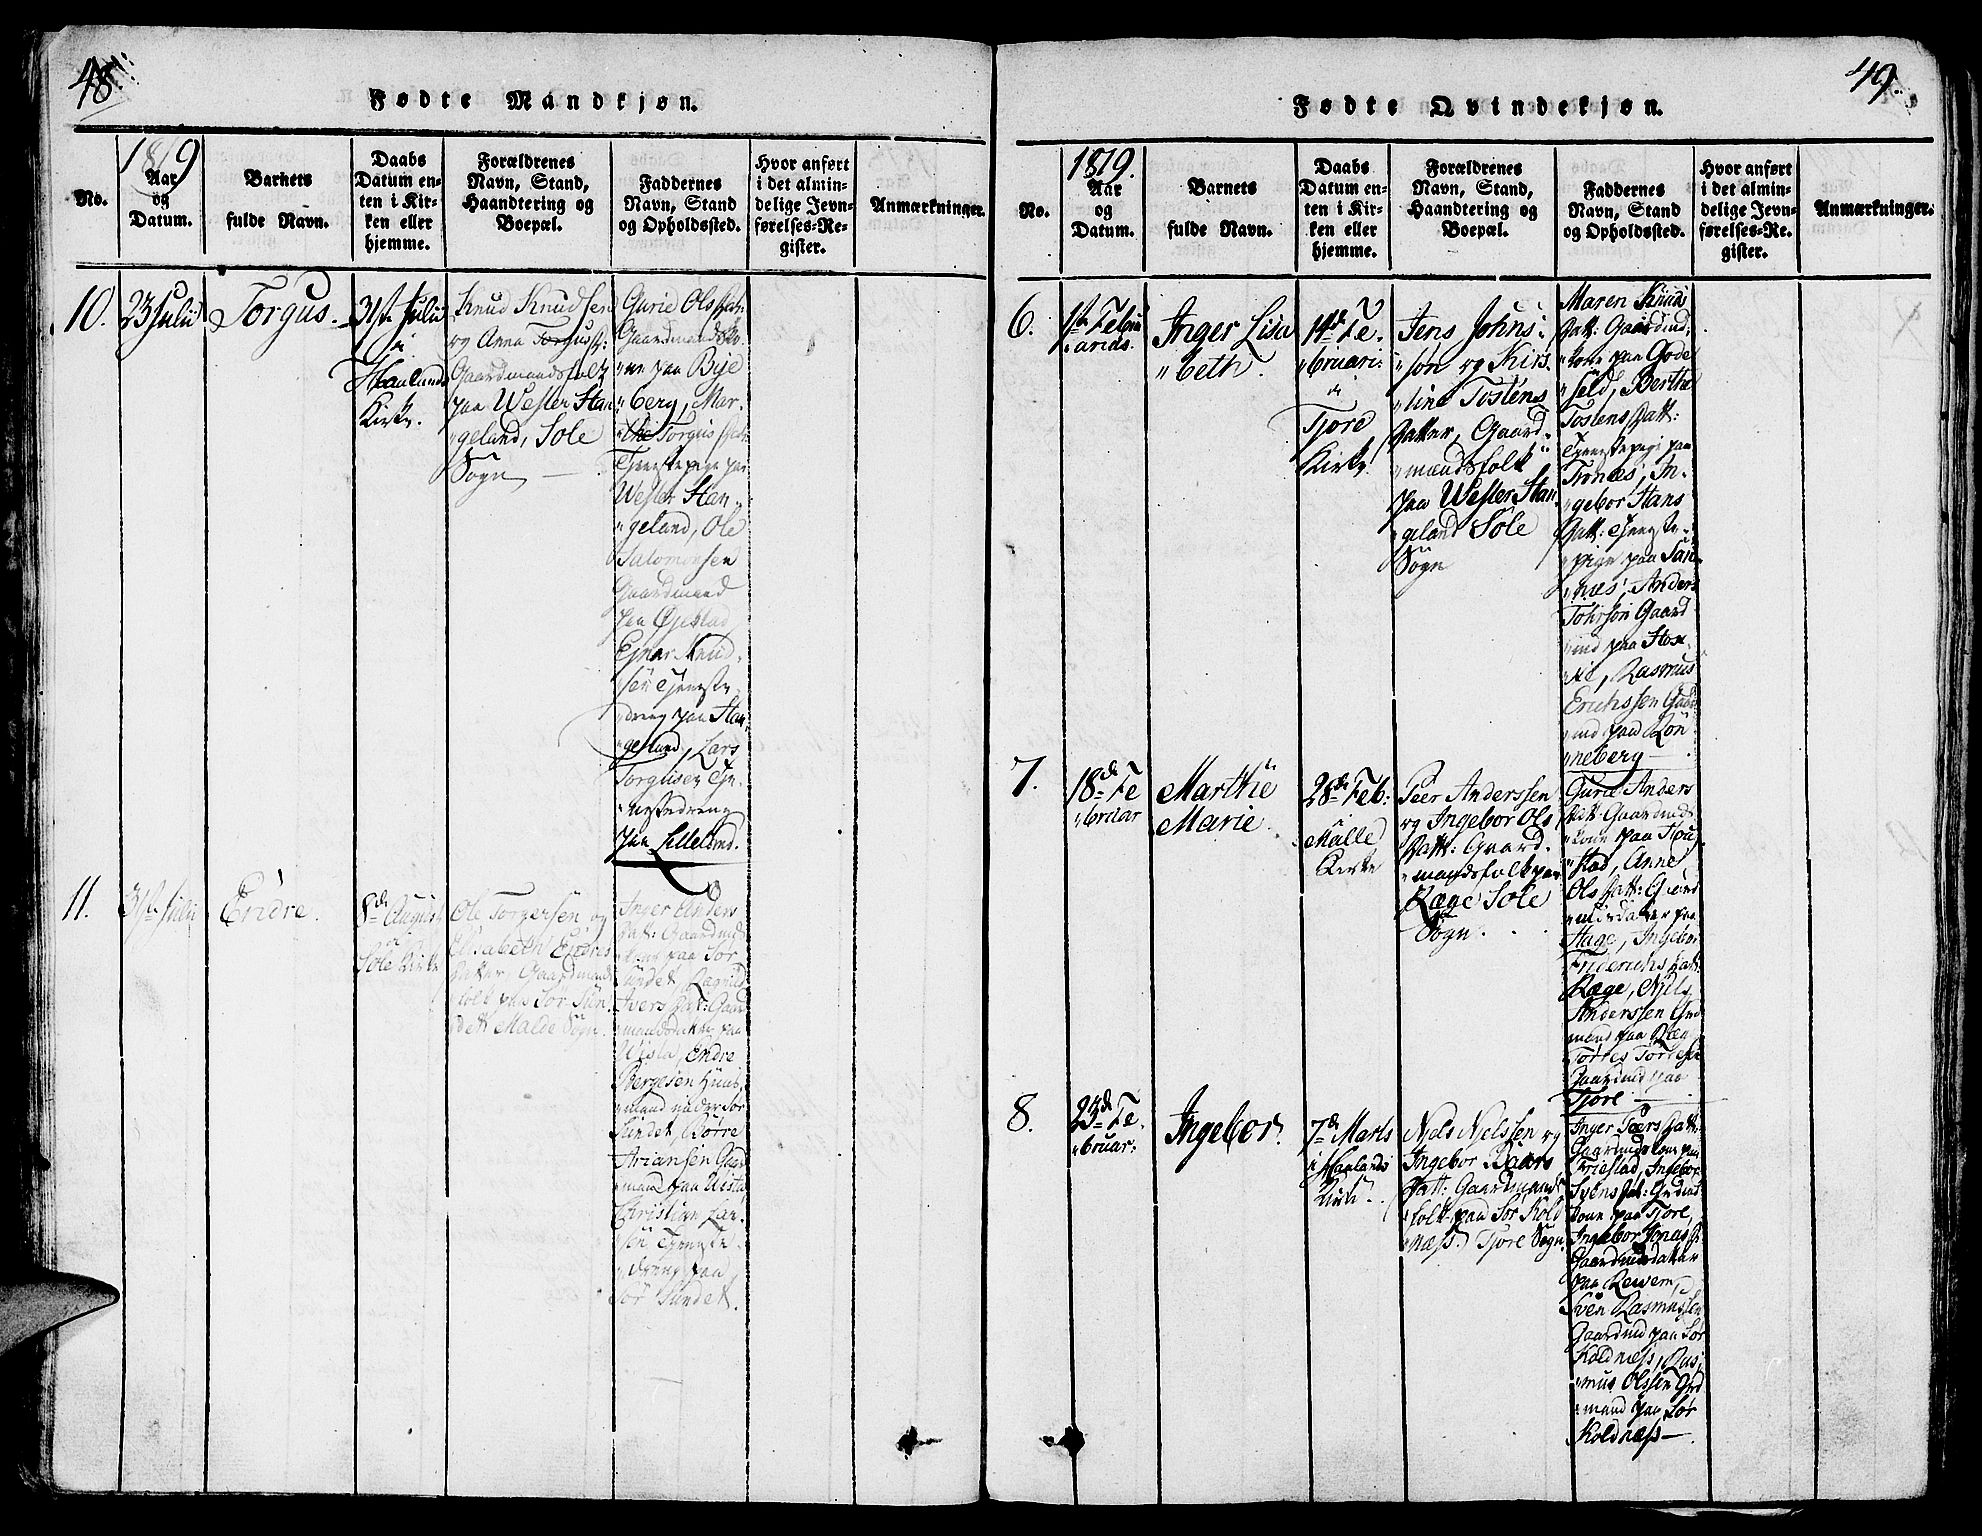 48.
Fødte Mandkjøn.
1819
No.
Aar
og
Datum.
Barnets
fulde Navn.
Daabs
Datum en-
ten i Kir-
ken eller
hjemme.
Forældrenes
Navn, Stand,
Haandtering og
Boepæl.
Faddernes
Navn, Stand
og Opholdssted.
Hvor anført
i det almin-
delige Jevn-
førelses-Re-
gister.
Anmærkninger.
10.
23 Julii
Torgus.
31te Julii
i
Haalands
Kirke.
Knud Knudsen
og Anna Torgus
Gaardmandsfolk
paa Wester Han
geland, Sole
Sogn
Gurie Ols Datt:
Gaardmandsko
ne paa Bije
berg, Mar-
the Torgus Datt:
Tjenestepige paa
Wester Han
geland, Ole
Salomonsen
Gaardmand
paa Øjestad
Ejnar Knud-
sen Tjeneste
dreng paa Han
geland, Lars
Torgusen Tje
nestedreng
paa Lilleland.
11.
31te Julii
Endre.
8de August
Sole Kirke
Ole Torgersen og
Elisabeth Endres
Datter, Gaardmands
folk paa Sør Sun
det Malde Sogn.
Inger Anders
Datt: Gaardmd
kone paa Sør
Sundet, Ragnild
Ivers Datt: Gaard
mandsdatter paa
Wista, Endre
Bergesen Huus
mand under Sør
Sundet, Børre
Ariansen Gaard
mand paa Wista
Christian Jan
sen Tjeneste
dreng paa
Sør Sundet.
49.
Fødte Qvindekjøn.
1819.
No.
Aar
og
Datum.
Barnets
fulde Navn.
Daabs
Datum en-
ten i Kir-
ken eller
hjemme.
Forældrenes
Navn, Stand,
Haandtering og
Boepæl.
Faddernes
Navn, Stand
og Opholdssted.
Hvor anført
i det almin-
delige Jevn-
førelses-Re-
gister.
Anmærkninger.
6.
1te Febru
arii
Inger Lisa
beth.
14de Fe
bruarii
i
Tjore
Kirke.
Jens Johns
søn og Kirs
tine Tostens
Datter, Gaard
mandsfolk
paa Wester Han
geland Sole
Sogn
Maren Knuds
Datt: Gaardmd:
kone paa Gode
seld, Berthe
Tostens Datt:
Tjenestepige paa
Tronæs, In
gebor Hans
Datt: Tjeneste
pige paa San
næs, Anders
Rasmus
Erichssen Gaard
md paa Røn
neberg
7.
18de Fe
bruar
Marthe
Marie.
28de Feb:
i
Malle
Kirke
Peer Anderssen
og Ingebor Ols
Datt: Gaard
mandsfolk paa
Ræge Sole
Sogn.
Gurie Anders
Datt: Gaardmds
kone paa
stad, Anne
Ols Datt:
Hage, Ingebor
Friderichs Datt:
Ræge, Njels
Anderssen Grd
mand paa Ræg
Tørres
Gaardmd paa
Tjore
8.
23de Fe
bruar:
Ingebor.
7de Marts
i Haalands
Kirke.
Njels Njelssen og
Ingebor Baars
Datt: Gaardmands
folk paa Sør Kold
næss. Tjore Sogn.
Inger Peers Datt:
Gaardmdskone paa
Friestad, Ingebor
Svens Datt: Grdmd
kone paa Tjore,
Ingebor Jonas D.
Gaardmdsdatter
paa Rewem,
Sven Rasmussen
Gaardmd paa Sør
Koldnæss, Ras
mus Olssen Grd
mand paa Sør
Koldnæss